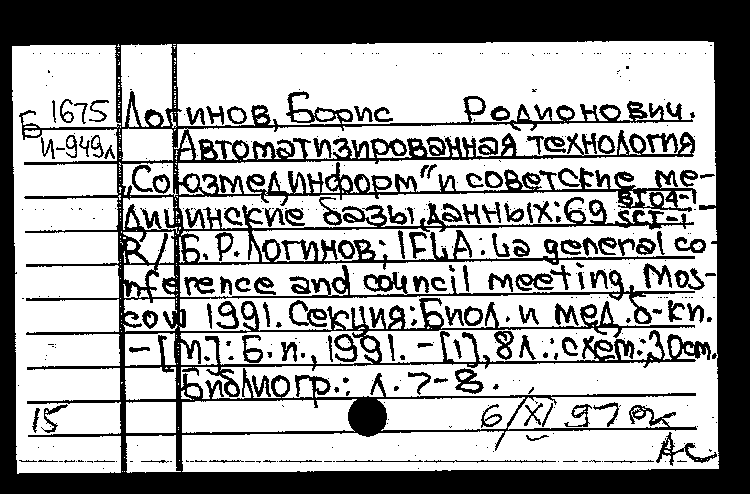 Б 1675 Логинов, Борис Родионович.
И-949л Автоматизированная технология
„Союзмединформ" и советские ме-
дицинские базы данных: 69 BIO4-1 SCI-1 -
R / Б.Р. Логинов; IFLA: La general co-
nference and council meeting, Mos-
cow 1991. Секция: Биол. и мед. б-ки.
- [М.]: Б. и., 1991. - [1], 8 л.: схем.; 30 см.
Библиогр.: л. 7-8.
15 6/XI 97
АС